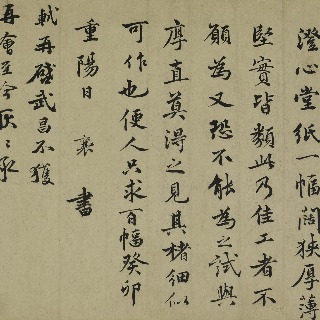 澄心堂紙一幅闊狹厚薄
堅實皆類此乃佳工者不
願為又恐不能為之試與
厚直莫得之見其楮細似
可作也便人只求百幅癸卯
重陽日 襄書
軾再啓武昌不獲
再會至今